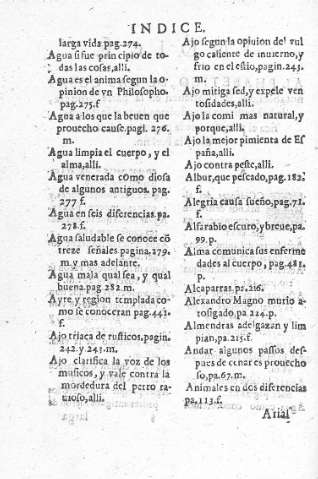 INDICE.
larga vida pag.274.
Agua si fue principio de to-
das las cosas, alli.
Agua es el anima segun la o-
pinion de vn Philosopho.
pag.275.f
Agua a los que la beuen que
prouecho cause.pagi. 276.
m.
Agua limpia el cuerpo, y el
alma, alli.
Agua venerada como diosa
de algunos antiguos. pag.
277 f.
Agua en seis diferencias.pa.
278.f.
Agua saludable se conoce cō
treze señales pagina.279.
m.y mas adelante.
Agua mala qual sea, y qual
buena.pag 282.m.
Ayre y region templada co-
mo se conoceran pag.441.
f.
Ajo triaca de rusticos, pagin.
242.y 243.m.
Ajo clarifica la voz de los
musicos, y vale contra la
mordedura del perro ra-
uioso, alli.
Ajo segun la opinion del vul
go caliente de inuierno, y
frio en el estio, pagin.243.
m.
Ajo mitiga sed, y expele ven
tosidades, alli.
Ajo la comi mas natural, y
porque, alli.
Ajo la mejor pimienta de Es
paña, alli.
Ajo contra peste, alli.
Albur, que pescado, pag.182.
f.
Alegria causa sueño, pag.71.
f.
Alfarabio escuro, y breue, pa.
99.p.
Alma comunica sus enferme
dades al cuerpo, pag.481.
p.
Alcaparras.ps.216.
Alexandro Magno murio a-
tosigado.pa 224.p.
Almendras adelgazan y lim
pian, pa.215.f.
Andar algunos passos des-
pues de cenar es prouecho
so, pa.67.m.
Animales en dos diferencias
pa.113.f.
Arial